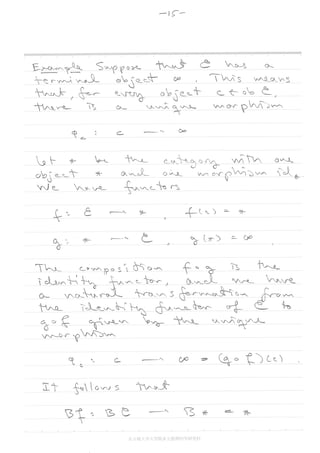 —15—
Example Suppose that C has a
terminal object ∞. This means
that, for every object c ∈ ob C,
there is a unique morphism
φ_c : c → ∞
Let * be the category with one
object * and one morphism id_*.
We have functors
f : C → * , f(c) = *
g : * → C , g(*) = ∞ .
The composition f∘g is the
identity functor, and we have
a natural transformation from
the identity functor of C to
g∘f given by the unique
morphism
φ_c : c → ∞ = (g∘f)(c) .
It follows that
Bf : BC → B* = *